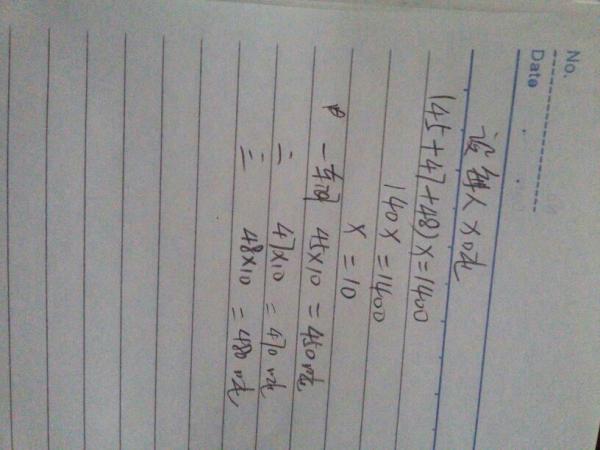 No.
Date
设每人 x吨
(45+47+48)x=1400
140x=1400
x=10
一车间 45×10=450吨
二 47×10=470吨
三 48×10=480吨